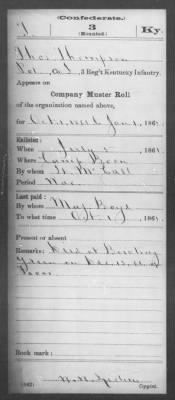 (Confederate.)
T. 3 Ky.
(Mounted)
Thos Thompson
Pvt., Co. I, 3 Reg't Kentucky Infantry.
Appears on
Company Muster Roll
of the organization named above,
for Oct 1 until Jan 1, 186
Enlisted:
When July 5, 1861.
Where Camp Boon
By whom
Period War
Last paid:
By whom Maj Boyd
To what time Oct 1, 186
Present or absent
Remarks: Died at Bowling
Green on Dec 13, 61 of
Book mark:
(642)
Copyist.